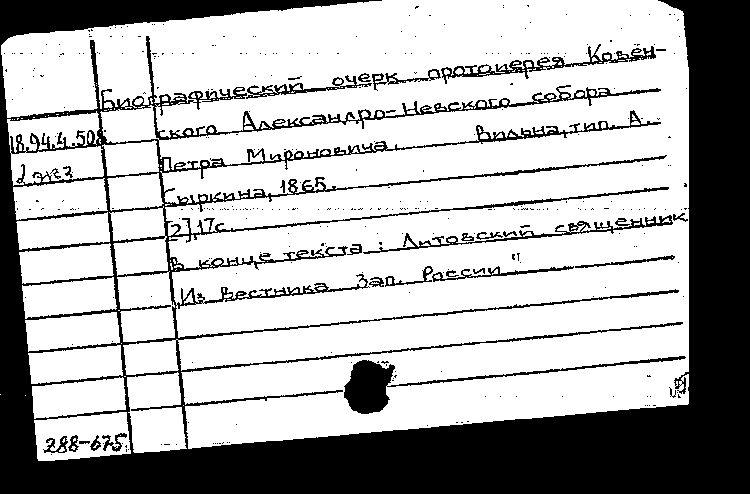 Биографический очерк протоиерея Ковен-
18.94.4.508 ского Александро-Невского собора
2 экз Петра Мироновича. Вильна, тип. А.
Сыркина, 1865.
[2], 17с.
В конце текста: Литовский священник
"Из Вестника Зап. России"
288-675